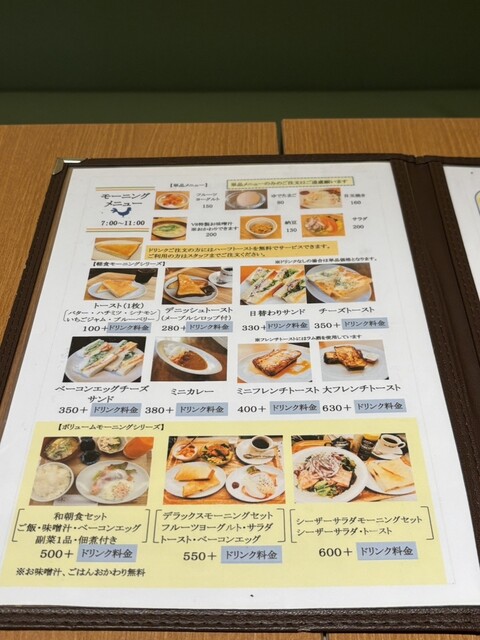 モーニング
メニュー
7:00～11:00
【単品メニュー】
単品メニューのみのご注文はご遠慮願います
フルーツ
ヨーグルト
150
ゆでたまご
80
目玉焼き
160
VS特製お味噌汁
※おかわりできます
200
納豆
130
サラダ
200
ドリンクご注文の方にはハーフトーストを無料でサービスできます。
ご利用の方はスタッフまでご注文ください。
【軽食モーニングシリーズ】
※ドリンクなしの場合は単品価格となります。
トースト(1枚)
(バター・ハチミツ・シナモン
いちごジャム・ブルーベリー)
100+ドリンク料金
デニッシュトースト
(メープルシロップ付)
280+ドリンク料金
日替わりサンド
330+ドリンク料金
チーズトースト
350+ドリンク料金
※フレンチトーストにはラム酒を使用しています
ベーコンエッグチーズ
サンド
350+ドリンク料金
ミニカレー
380+ドリンク料金
ミニフレンチトースト
400+ドリンク料金
大フレンチトースト
630+ドリンク料金
【ボリュームモーニングシリーズ】
和朝食セット
ご飯・味噌汁・ベーコンエッグ
副菜1品・佃煮付き
500+ドリンク料金
※お味噌汁、ごはんおかわり無料
デラックスモーニングセット
フルーツヨーグルト・サラダ
トースト・ベーコンエッグ
550+ドリンク料金
シーザーサラダモーニングセット
シーザーサラダ・トースト
600+ドリンク料金